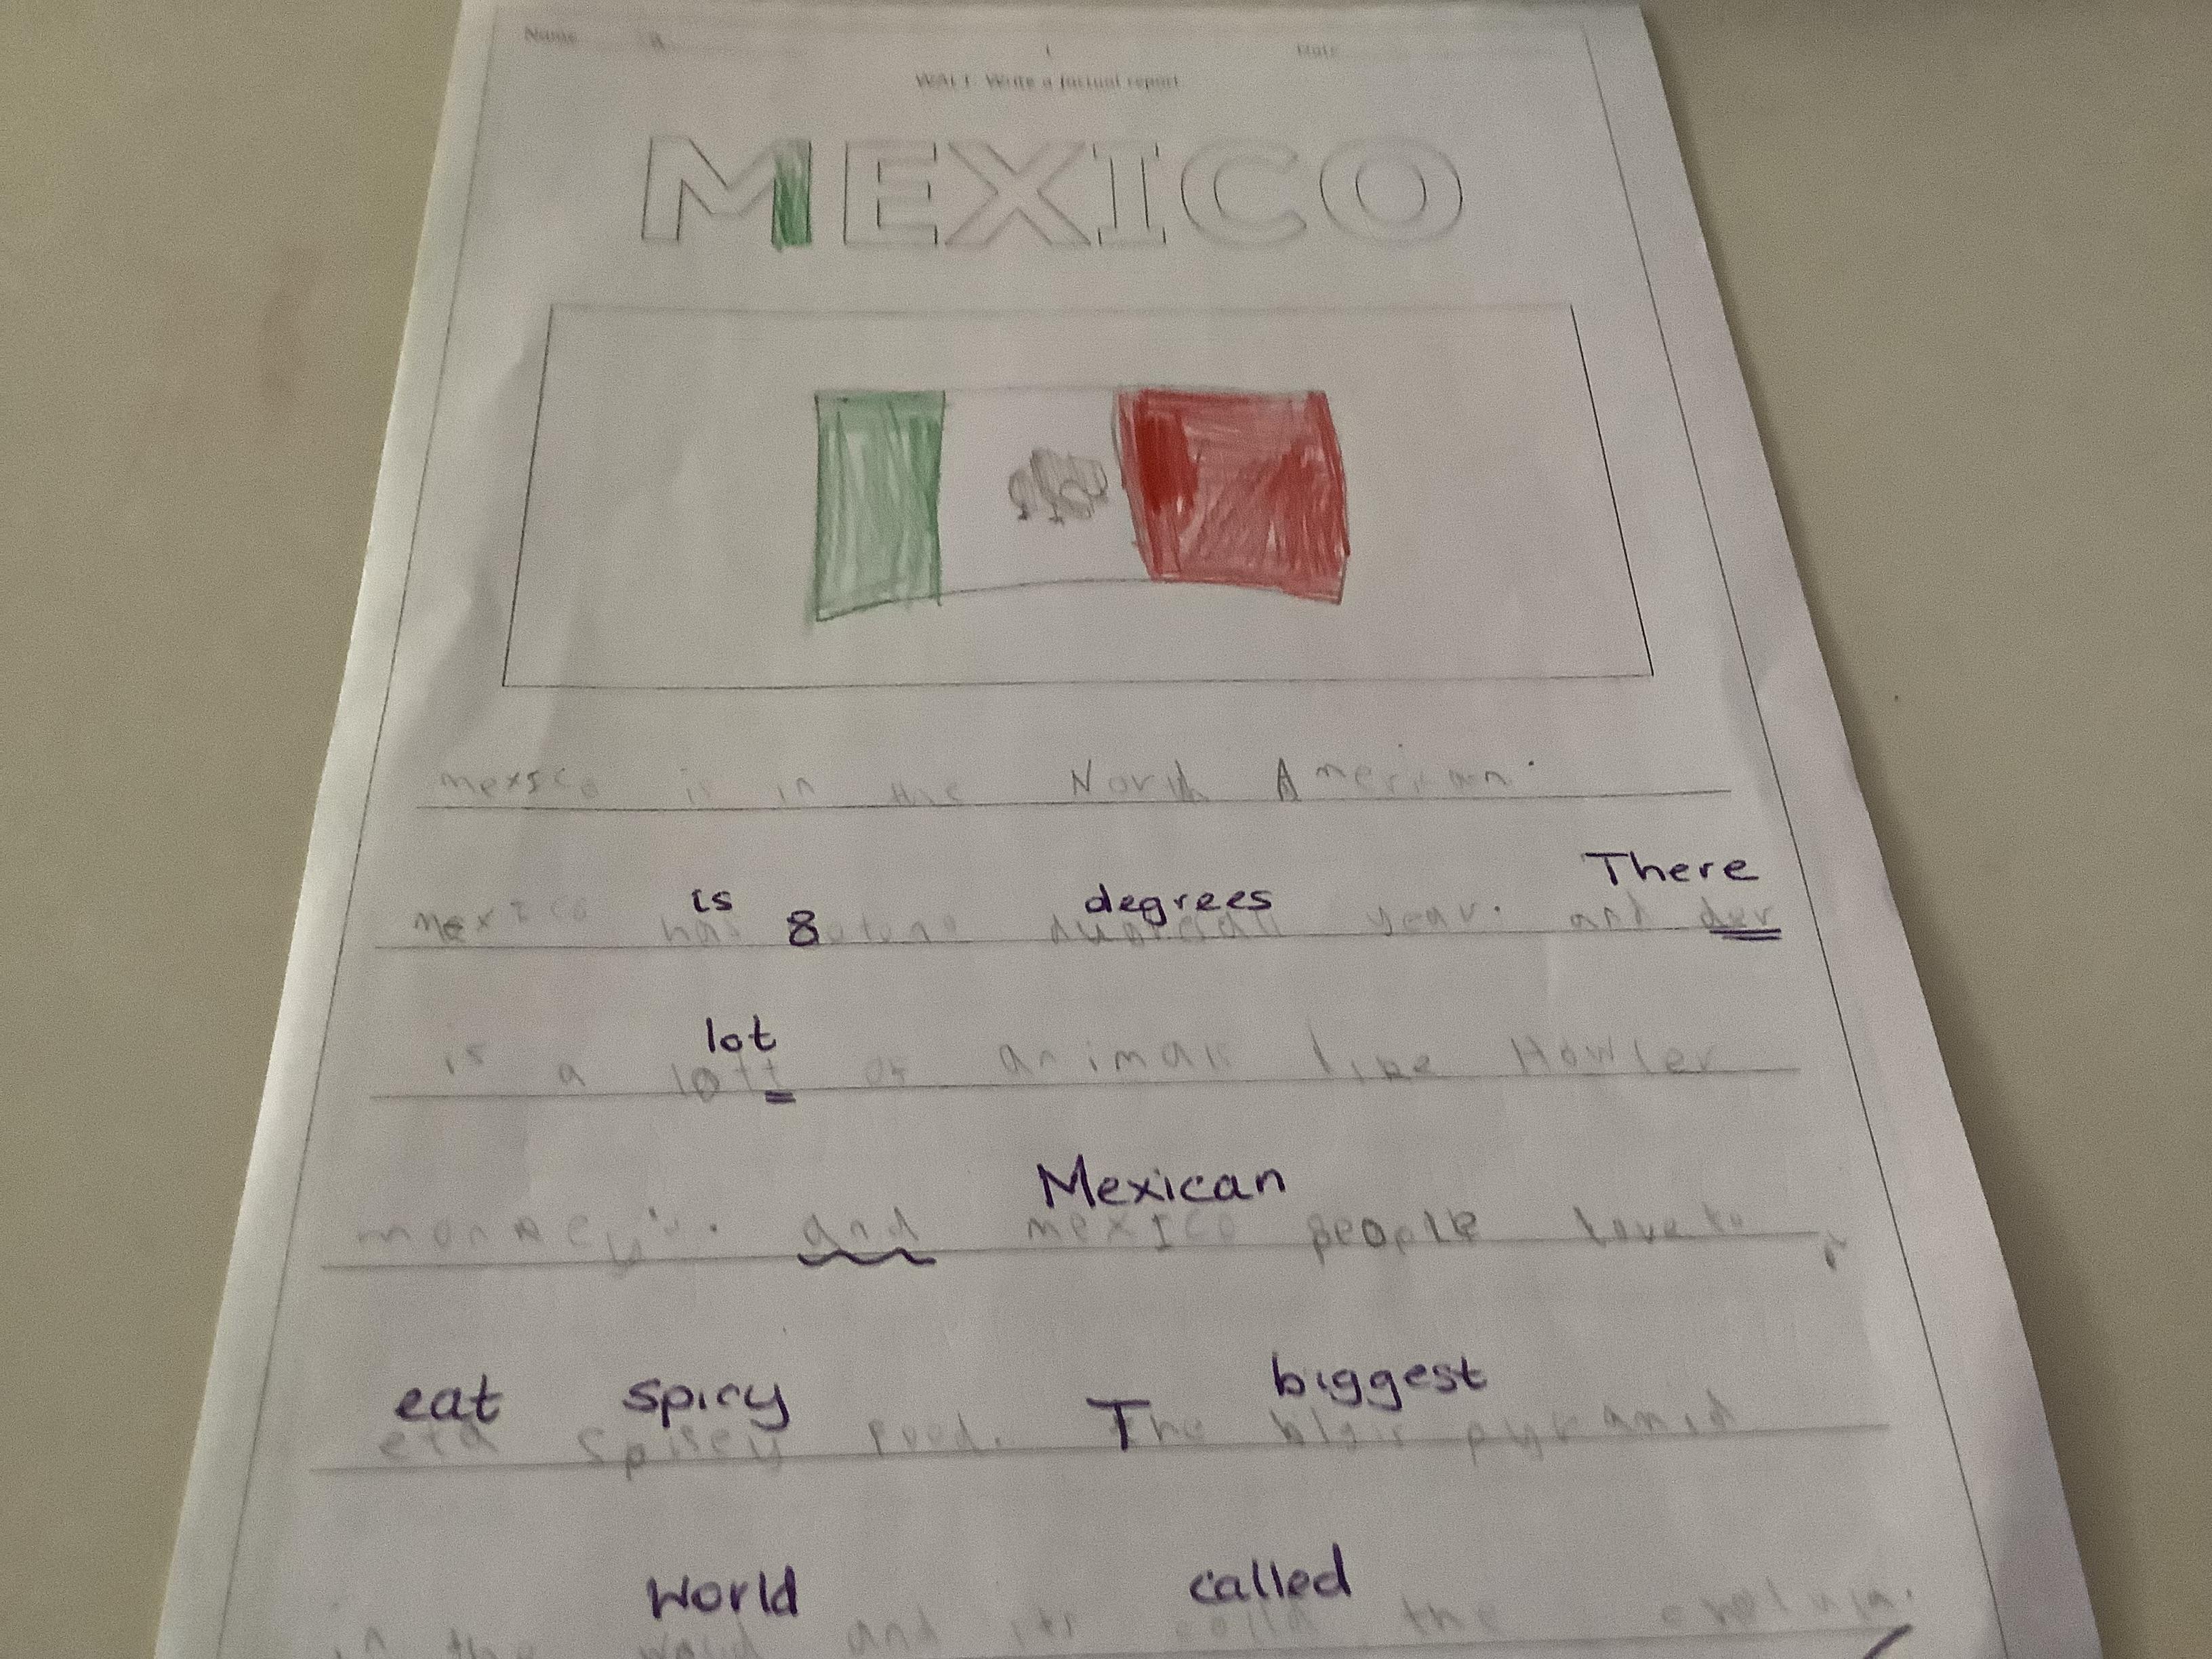 Name Date
WALT: Write a factual report
MEXICO
mexico is in the North American.
is degrees There
mexico has 8 year. and der
lot
is a lott of animals like Howler
Mexican
monkey's. and mexico people love to
eat spicy biggest
eta spisey food. The pyramid
World called
in the and its the